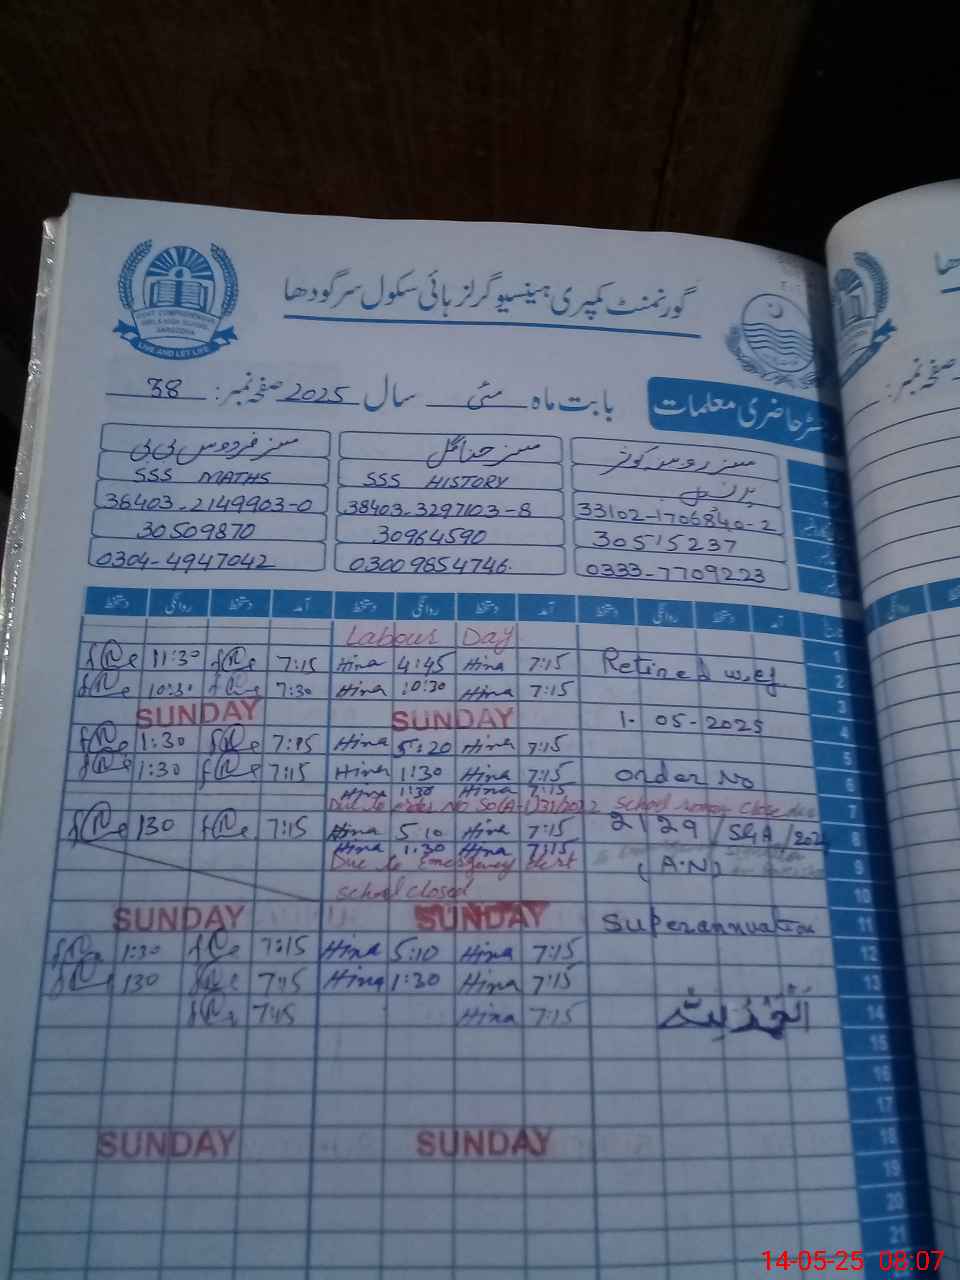 گورنمنٹ کمپری ہینسیو گرلز ہائی سکول سرگودھا
GOVT. COMPREHENSIVE
GIRLS HIGH SCHOOL
SARGODHA
LIVE AND LET LIFE
رجسٹر حاضری معلمات بابت ماہ مئی سال 2025 صفحہ نمبر: 38
مسز کوثر مسز حنا گل مسز فردوس بی بی
پرنسپل SSS HISTORY SSS MATHS
33102-1706840-2 38403-3297103-8 38403-2149903-0
30515237 30964590 30509870
0333-7709223 03009854746 0304-4947042
آمد دستخط روانگی دستخط آمد دستخط روانگی دستخط آمد دستخط روانگی دستخط
1 Labour Day
2 Retired w.e.f 7:15 Hina 4:45 Hina 7:15 11:30
3 7:15 Hina 10:30 Hina 7:30 10:30
4 1-05-2025 SUNDAY SUNDAY
5 7:15 Hina 5:20 Hina 7:15 1:30
6 Order No 7:15 Hina 1:30 Hina 7:15 1:30
7 7:15 Hina 1:30 Hina
Due to order No SO(A-1)31/2022 School close
8 2/29/SGA/202 7:15 Hina 5:10 Hina 7:15 130
9 (A.N) 7:15 Hina 1:30 Hina
Due to Emergency
10 school closed
11 Superannuation SUNDAY SUNDAY
12 7:15 Hina 5:10 Hina 7:15 1:30
13 7:15 Hina 1:30 Hina 7:15 130
14 7:15 Hina 7:15
15
16
17
18 SUNDAY SUNDAY
19
20
21
14-05-25 08:07